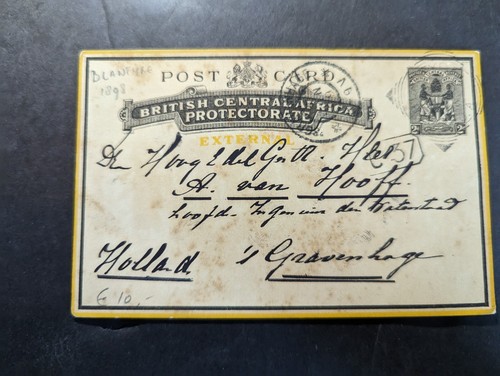 BLANTYRE
1898
POST CARD
BRITISH CENTRAL AFRICA
PROTECTORATE
EXTERNAL
2d
657
Den Hoog Edel Gestr. Heer
A. van Hooff.
Hoofd-Ingenieur den Waterstaat
Holland
's Gravenhage
€ 10,-